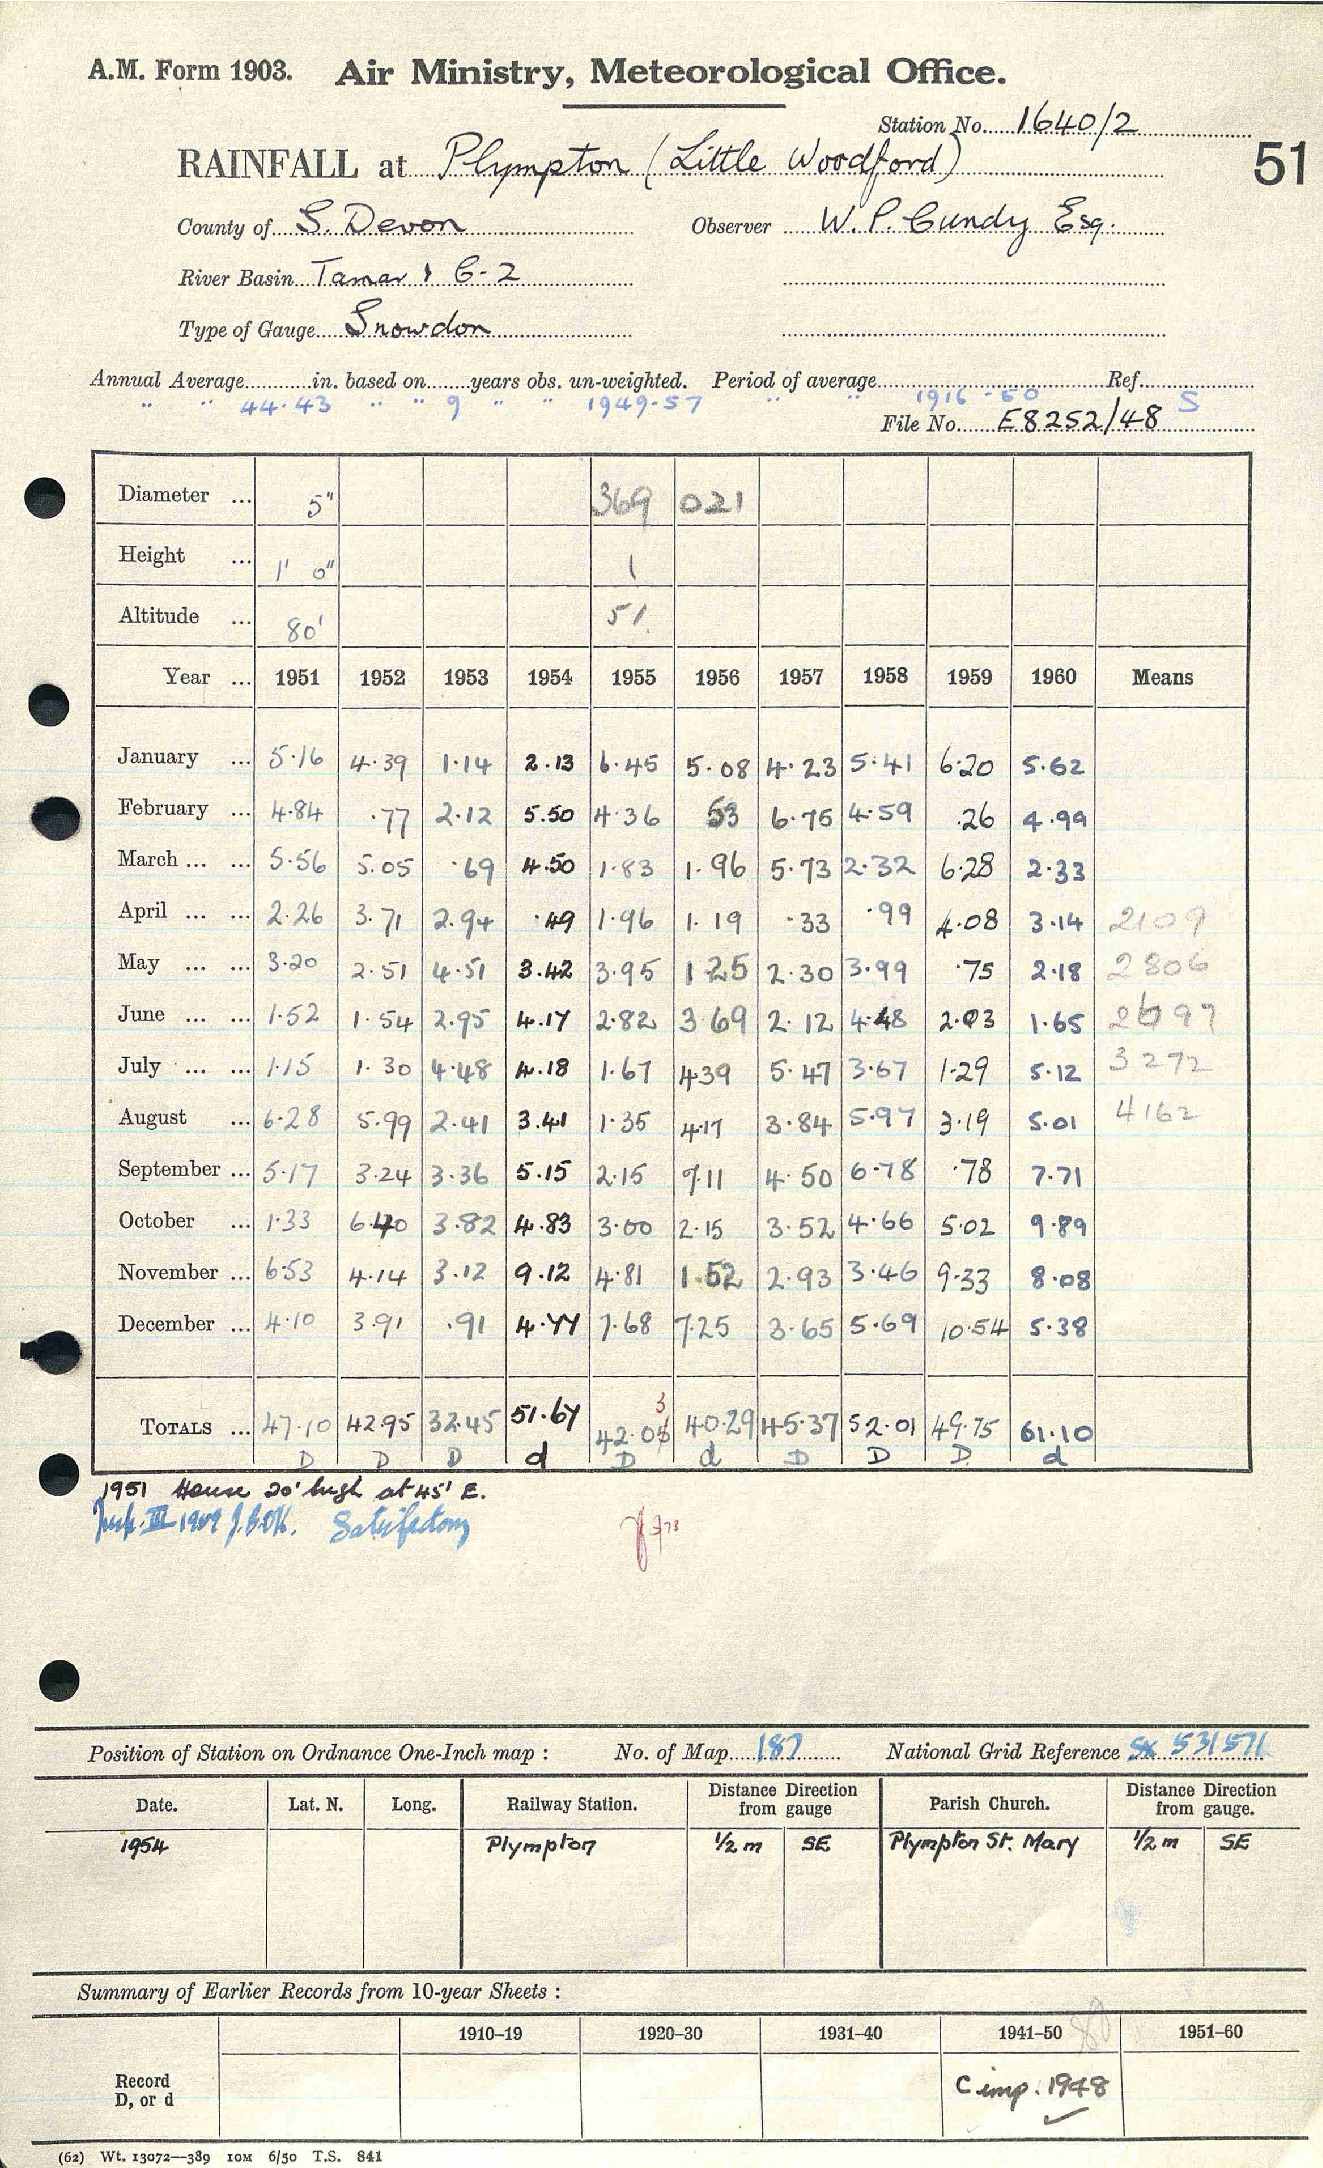 A.M. Form 1903. Air Ministry, Meteorological Office.
Station No. 1640/2
RAINFALL at Plympton (Little Woodford)
51
County of S. Devon Observer W. P. Cundy Esq.
River Basin Tamar & C-2
Type of Gauge Snowdon
Annual Average in. based on years obs. un-weighted. Period of average Ref.
" " 44.43 " " 9 " " 1949-57 " " 1916-50 S
File No. E8252/48
Diameter ... 5" 369 021
Height ... 1' 0" 1
Altitude ... 80' 51
Year ... 1951 1952 1953 1954 1955 1956 1957 1958 1959 1960 Means
January ... 5.16 4.39 1.14 2.13 6.45 5.08 4.23 5.41 6.20 5.62
February ... 4.84 .77 2.12 5.50 4.36 53 6.75 4.59 .26 4.99
March ... ... 5.56 5.05 .69 4.50 1.83 1.96 5.73 2.32 6.28 2.33
April ... ... 2.26 3.71 2.94 .49 1.96 1.19 .33 .99 4.08 3.14 2109
May ... ... 3.20 2.51 4.51 3.42 3.95 1 25 2.30 3.99 .75 2.18 2806
June ... ... 1.52 1.54 2.95 4.17 2.82 3 69 2.12 4.48 2.03 1.65 2697
July ... ... 1.15 1.30 4.48 4.18 1.67 439 5.47 3.67 1.29 5.12 3272
August ... 6.28 5.99 2.41 3.41 1.35 4.17 3.84 5.97 3.19 5.01 4162
September ... 5.17 3.24 3.36 5.15 2.15 7.11 4.50 6.78 .78 7.71
October ... 1.33 6.40 3.82 4.83 3.00 2.15 3.52 4.66 5.02 9.89
November ... 6.53 4.14 3.12 9.12 4.81 1.52 2.93 3.46 9.33 8.08
December ... 4.10 3.91 .91 4.77 7.68 7.25 3.65 5.69 10.54 5.38
3
TOTALS ... 47.10 42.95 32.45 51.67 42.0 40.29 45.37 52.01 49.75 61.10
D D D d D d D D D d
1951 House 20' high at 45' E.
Insp. III 1909 Satisfactory
Position of Station on Ordnance One-Inch map : No. of Map 187 National Grid Reference SX 531571
Date. Lat. N. Long. Railway Station. Distance Direction from gauge Parish Church. Distance Direction from gauge.
1954 Plympton 1/2 m SE Plympton St. Mary 1/2 m SE
Summary of Earlier Records from 10-year Sheets :
1910–19 1920–30 1931–40 1941–50 1951–60
Record D, or d C imp. 1948
(62) Wt. 13072—389 10M 6/50 T.S. 841